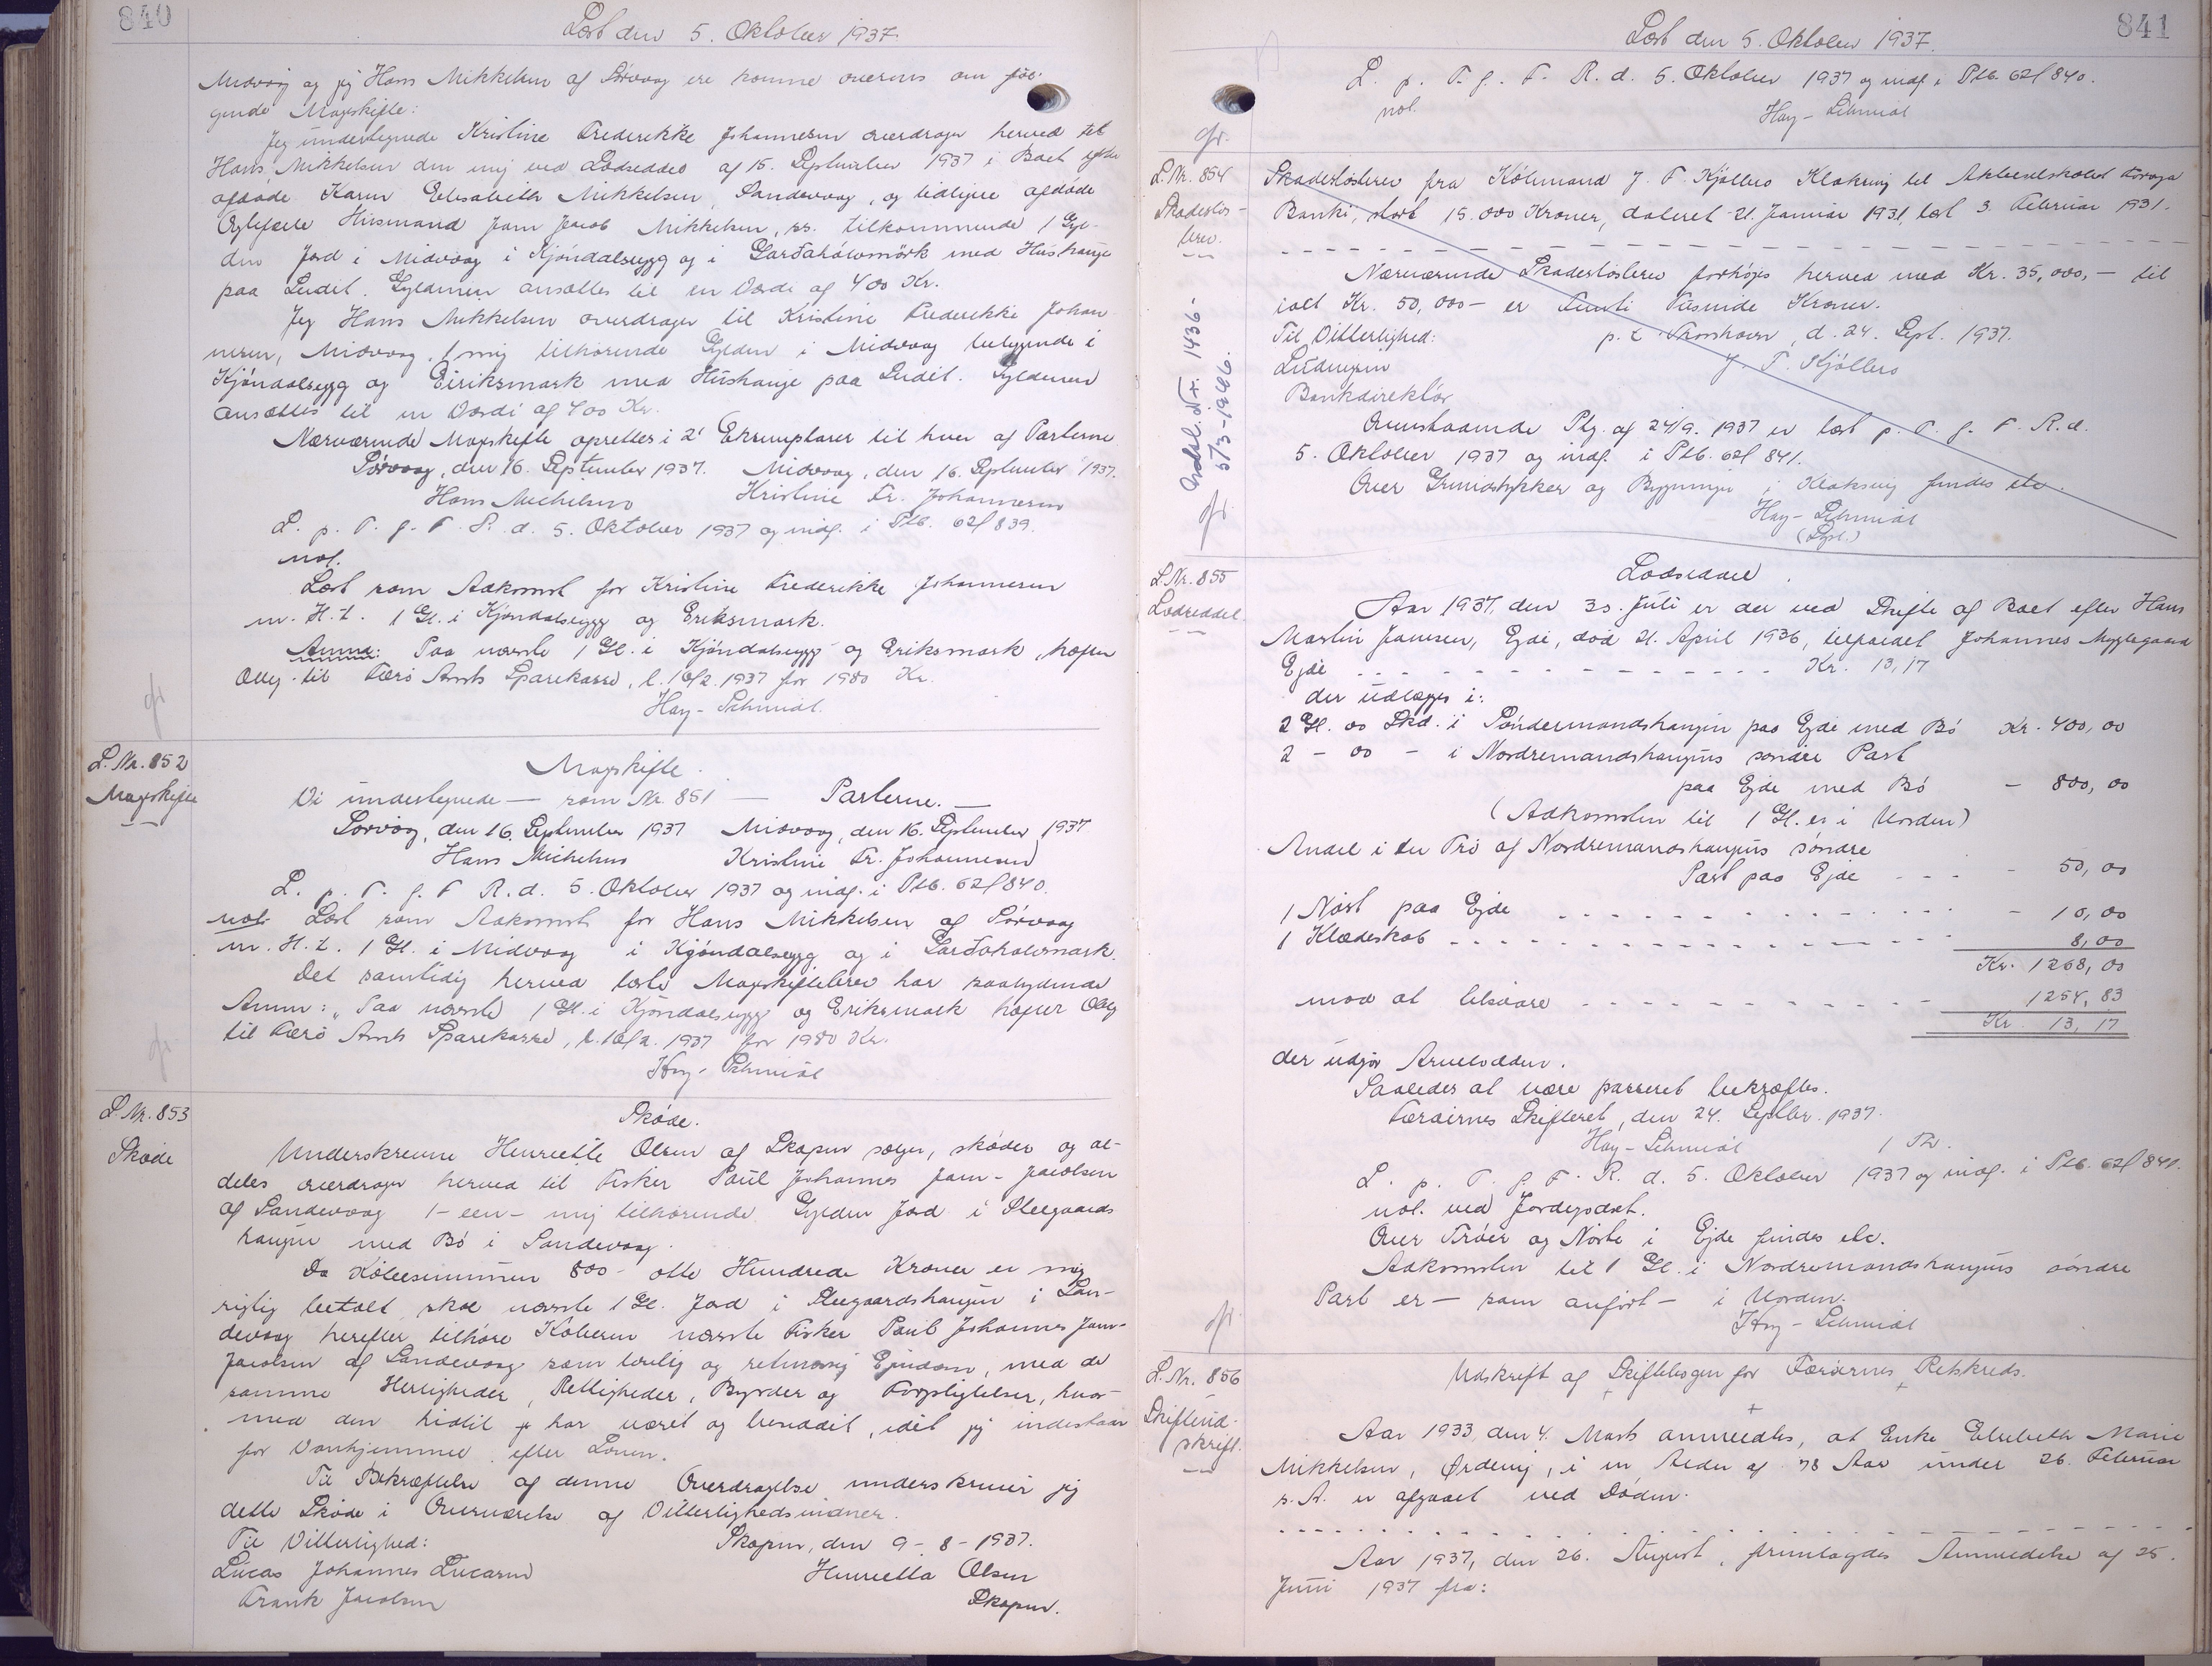 840
Læst den 5. Oktober 1937.
Midvaag og jeg Hans Mikkelsen af Sørvaag ere komne overens om føl-
gende Mageskifte:
Jeg undertegnede Kristine Frederikke Johannesen overdrager herved til
Hans Mikkelsen den mig ved Lodseddel af 15. September 1937 i Boet efter
afdøde Karen Elisabeth Mikkelsen, Sandevaag, og tidligere afdøde
Ægtefælle Husmand Jens Jacob Mikkelsen, ss. tilkommende 1 Gyl-
den Jord i Midvaag i Kjóndalsrygg og i Garðahólsmørk med Hushauge
paa Ludit. Gyldenen ansættes til en Værdi af 400 Kr.
Jeg Hans Mikkelsen overdrager til Kristine Frederikke Johan-
nesen, Midvaag, 1 mig tilhørende Gylden i Midvaag beliggende i
Kjóndalsrygg og Eiriksmørk med Hushauge paa Ludit. Gyldenen
ansættes til en Værdi af 400 Kr.
Nærværende Mageskifte oprettes i 2 Exemplarer til hver af Parterne
Sørvaag, den 16. September 1937. Midvaag, den 16. September 1937.
Hans Michelsen Kristine Fr. Johannesen
L. p. T. f. F. R. d. 5. Oktober 1937 og indf. i Ptb. 62f 839.
not.
Læst som Adkomst for Kristine Frederikke Johannesen
m. H. t. 1 Gl. i Kjóndalsrygg og Eriksmørk.
Anm: Paa næevnte 1 Gl. i Kjóndalsrygg og Eriksmørk, hæfter
Oblg. til Færø Amts Sparekasse, l. 16/2. 1937 for 1980 Kr.
Hay-Schmidt.
gf.
L. Nr. 852
Mageskifte
Mageskifte.
Vi undertegnede — som Nr. 851 — Parterne. —
Sørvaag, den 16. September 1937 Midvaag, den 16. September 1937
Hans Michelsen Kristine Fr. Johannesen
L. p. T. f. F. R. d. 5. Oktober 1937 og indf. i Ptb. 62f 840.
not. Læst som Adkomst for Hans Mikkelsen af Sørvaag
m. H. t. 1 Gl. i Midvaag i Kjóndalsrygg og i Garðaholsmørk.
Det samtidig herved læste Mageskiftebrev har saalydende
Anm: "Paa nævnte 1 Gl. i Kjóndalsrygg og Eriksmørk hæfter Oblg
til Færø Amts Sparekasse, l. 16/2. 1937 for 1980 Kr.
Hay-Schmidt
gf.
L. Nr. 853
Skøde
Skøde.
Underskrevne Henriette Olsen af Skopun sælger, skøder og al-
deles overdrager herved til Fisker Poul Johannes Jam-Jacobsen
af Sandevaag 1- een- mig tilhørende Gylden Jord i Sleegaards
haugen med Bø i Sandevaag.
Da Købesummen 800 - otte Hundrede Kroner er mig
rigtig betalt, skal nævnte 1 Gl. Jord i Sleegaardshaugen i San-
devaag herefter tilhøre Køberen nævnte Fisker Poul Johannes Jam-
Jacobsen af Sandevaag som lovlig og retmæssig Ejendom, med de
samme Herligheder, Rettigheder, Byrder og Forpligtelser, hvor-
med den hidtil jeg har været og benddit, idet jeg indestaar
for Vanhjemmel efter Loven.
Til Bekræftelse af denne Overdragelse underskriver jeg
dette Skøde i Overværelse af Vitterlighedsvidner.
Til Vitterlighed: Skopun, den 9-8-1937.
Lucas Johannes Lucasen Henrietta Olsen
Frank Jacobsen Skopun.
841
Læst den 5. Oktober 1937.
L. p. T. f. F. R. d. 5. Oktober 1937 og indf. i Ptb. 62f 840.
not. Hay-Schmidt
gf.
L. Nr. 854
Skadesløs-
brev.
Skadesløsbrev fra Købmand J. F. Kjølbro Klaksvig til Aktieselskabet Føroya
Banki, stort 15.000 Kroner, dateret 21. Januar 1931, læst 3. Februar 1931.
Nærværende Skadesløsbrev forhøjes herved med Kr. 35,000,- til
ialt Kr. 50,000- er Femti Tusinde Kroner.
Til Vitterlighed: p. t. Thorshavn, d. 24. Sept. 1937.
J. F. Kjølbro
Bankdirektør
Ovenstaaende Ptg. af 24/9. 1937 er læst p. T. f. F. R. d.
5. Oktober 1937 og indf. i Ptb. 62f 841.
Over Grundstykker og Bygninger i Klaksvig findes etc.
Hay-Schmidt
(Lgst.)
Nr. 1436-
5/3-1946.
gf.
L. Nr. 855
Lodseddel
Lodseddel.
Aar 1937, den 30. Juli er der ved Skifte af Boet efter Hans
Martin Jamsen, Ejde, død 21. April 1936, tilfaldet Johannes Myglegaard
Ejde - - - Kr. 13,17
der udlægges i:
2 Gl. 00 Skd. i Søndermandshaugen paa Ejde med Bø Kr. 400,00
2 - 00 - i Nordremandshaugens søndre Part
paa Ejde med Bø - 800,00
(Adkomsten til 1 Gl. er i Uorden)
Andel i en Trø af Nordremandshaugens søndre
Part paa Ejde - - - 50,00
1 Nøst paa Ejde - - - 10,00
1 Klædeskab - - - 8,00
Kr. 1268,00
mod at tilsvare - - - 1254,83
Kr. 13,17
der udgjør Arvelodden.
Saaledes at være passeret bekræftes.
Færøernes Skifteret, den 24. Septbr. 1937.
Hay-Schmidt / Th.
L. p. T. f. F. R. d. 5. Oktober 1937 og indf. i Ptb. 62f 841.
not. ved Jordegodset.
Over Trøer og Nøste i Ejde findes etc.
Adkomsten til 1 Gl. i Nordremandshaugens søndre
Part er — som anført — i Uorden.
Hay-Schmidt
gf.
L. Nr. 856
Skifteud-
skrift.
Udskrift af Skiftebogen for Færøernes Retskreds.
+
Aar 1933, den 4. Marts anmeldtes, at Enke Elsebeth Marie
Mikkelsen, Ørdevig, i en Alder af 78 Aar under 26. Februar
s. A. er afgaaet ved Døden.
Aar 1937, den 26. August, fremlagdes Anmeldelse af 25.
Juni 1937 fra: